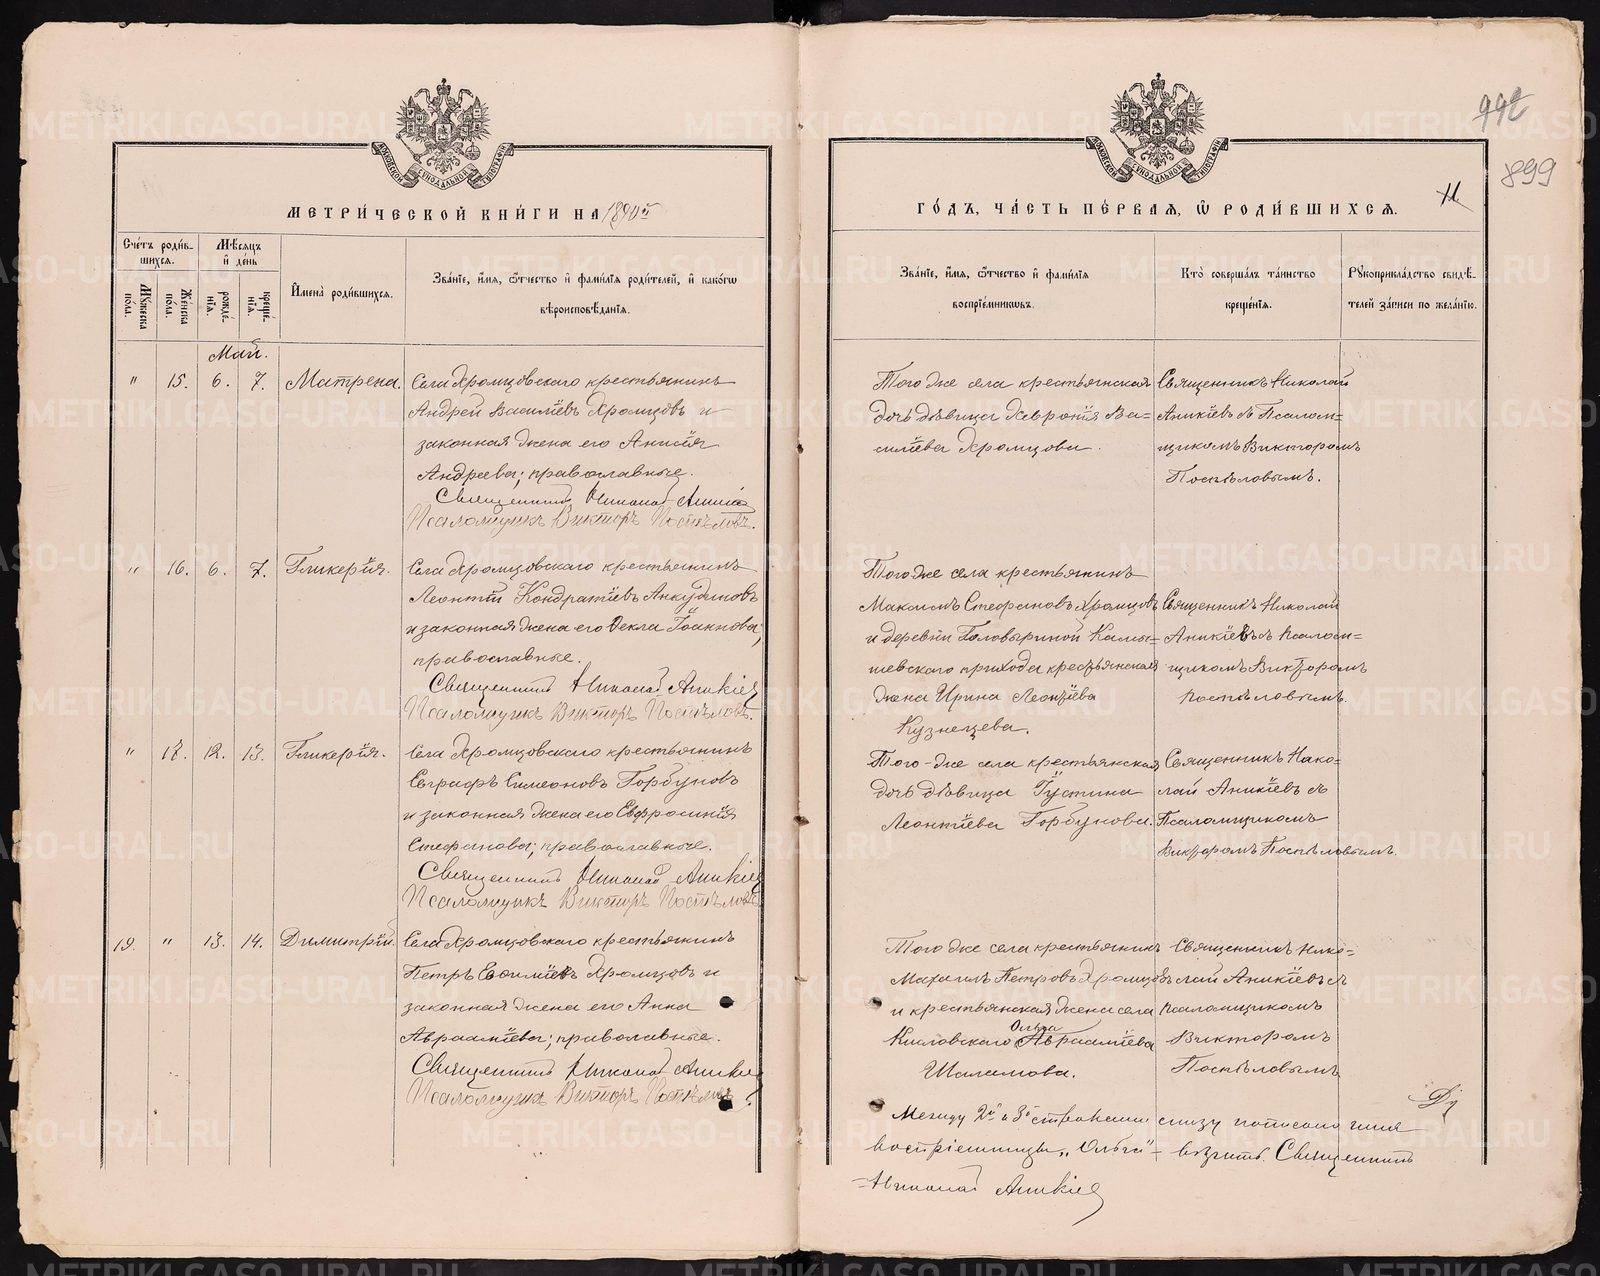 992
899
11.
МЕТРИ́ЧЕСКОЙ КНИ́ГИ НА 1890й
ГО́ДЪ, ЧА́СТЬ ПЕ́РВАЯ, Ѽ РОДИ́ВШИХСЯ.
Сче́тъ роди́в-
шихся.
Мѣ́сяцъ
и҆ де́нь
Му́жеска
по́ла.
Же́нска
по́ла.
рожде́-
нїя.
креще́-
нїя.
И҆мена̀ роди́вшихся.
Зва́нїе, и҆́мя, ѻ҆́тчество и҆ фами́лїя роди́телей, и҆ како́гѡ
вѣроисповѣ́данїя.
Зва́нїе, и҆́мя, ѻ҆́тчество и҆ фами́лїя
воспрїе́мникѡвъ.
Кто̀ соверша́лъ та́инство
креще́нїя.
Рукоприкла́дство свидѣ́-
телей за́писи по жела́нїю.
Май.
" 15. 6. 7. Матрена.
Села Хромцовскаго крестьянинъ
Андрей Василіевъ Хромцовъ и
законная жена его Анисія
Андреева; православные.
Священникъ Николай Аникіев
Псаломщикъ Викторъ Поспѣловъ.
Того же села крестьянская
дочь дѣвица Хеврония Ва-
силіева Хромцова.
Священникъ Николай
Аникіевъ съ Псалом-
щикомъ Викторомъ
Поспѣловымъ.
" 16. 6. 7. Гликерія.
Села Хромцовскаго крестьянинъ
Леонтій Кондратіевъ Анкудиновъ
и законная жена его Ѳекла Іоаннова;
православные.
Священникъ Николай Аникіев
Псаломщикъ Викторъ Поспѣловъ.
Того же села крестьянинъ
Максимъ Стефановъ Хромцовъ
и деревни Головыриной Камы-
шевскаго прихода крестьянская
жена Ирина Леонтіева
Кузнецева.
Священникъ Николай
Аникіевъ съ Псалом-
щикомъ Викторомъ
Поспѣловымъ.
" 17. 12. 13. Гликерія.
Села Хромцовскаго крестьянинъ
Евграфъ Симеоновъ Горбуновъ
и законная жена его Евфросинія
Стефанова; православные.
Священникъ Николай Аникіев
Псаломщикъ Викторъ Поспѣловъ
Того-же села крестьянская
дочь дѣвица Іустина
Леонтіева Горбунова.
Священникъ Нико-
лай Аникіевъ съ
Псаломщикомъ
Викторомъ Поспѣловымъ.
19. " 13. 14. Димитрій.
Села Хромцовскаго крестьянинъ
Петръ Евѳиміевъ Хромцовъ и
законная жена его Анна
Авраамиева; праволавные.
Священникъ Николай Аникіев
Псаломщикъ Викторъ Поспѣловъ.
Того же села крестьянинъ
Маркимъ Петровъ Хромцовъ
и крестьянская жена села
Ольга
Кисловскаго Авраамиева
Шаламова.
Священникъ Нико-
лай Аникіевъ съ
псаломщикомъ
Викторомъ
Поспѣловымъ
Между 2й и 3й строками снизу написано имя
воспріемницы „Ольга" – вѣрить. Священникъ
Николай Аникіев
METRIKI.GASO-URAL.RU